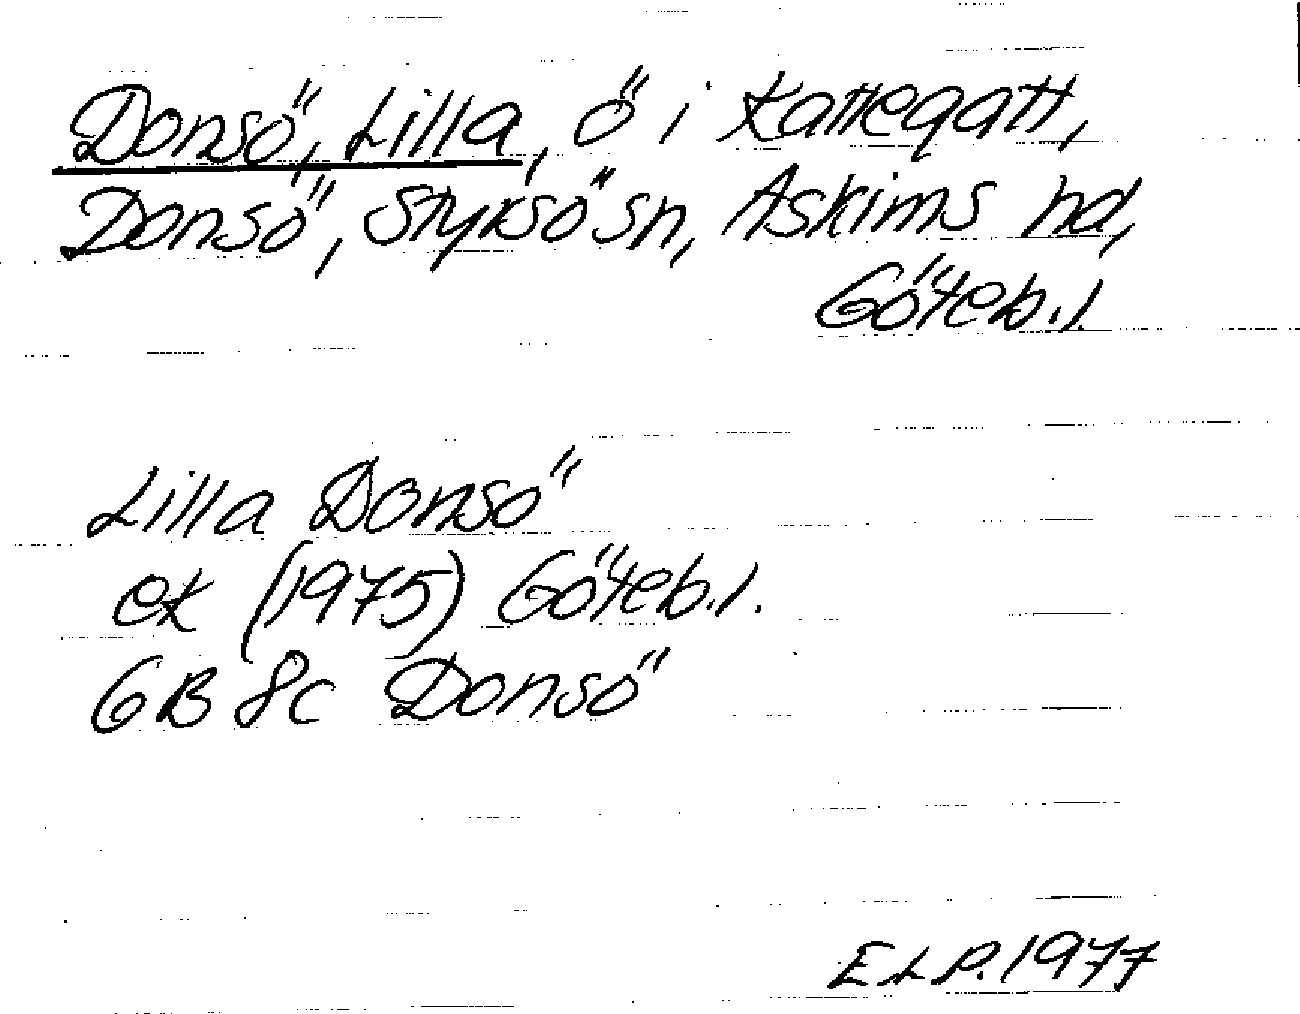 Donsö, Lilla, ö i Kattegatt,
Donsö, Styrsö sn, Askims hd,
Göteb.l.
Lilla Donsö
ek (1975) Göteb.l.
GB 8c Donsö
ELP. 1977